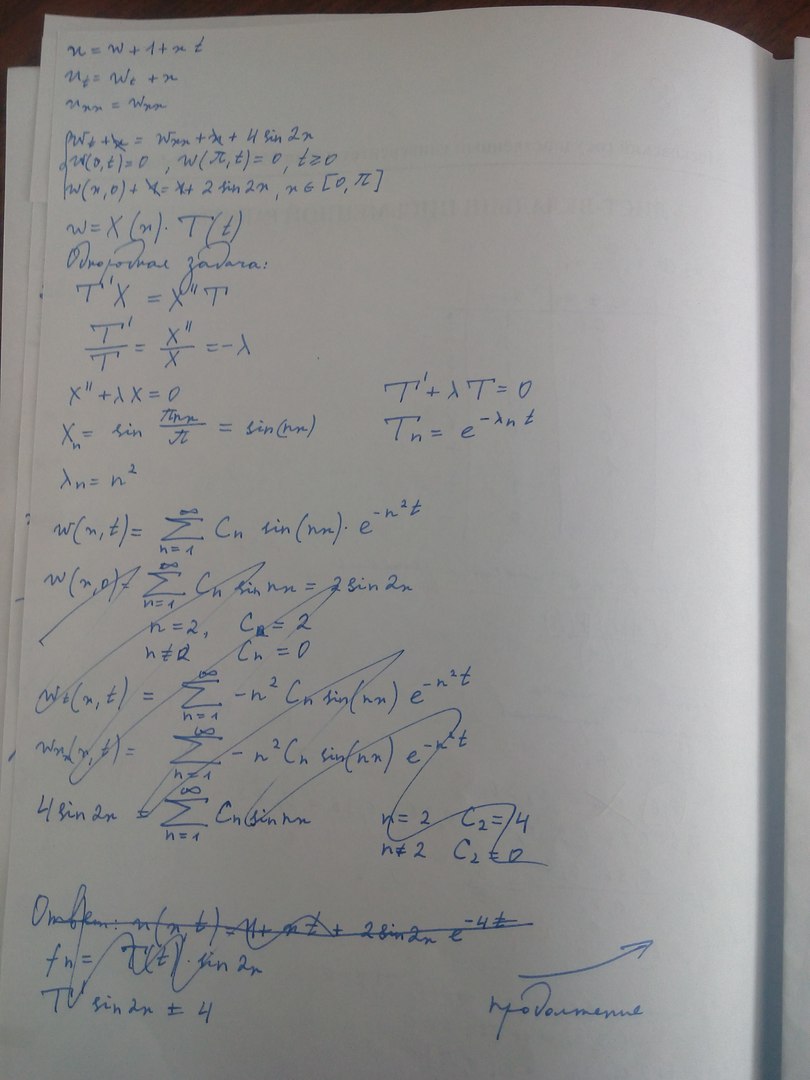 u = w + 1 + x t
u_t = w_t + x
u_xx = w_xx
w_t + x = w_xx + x + 4 sin 2x
w(0,t) = 0 , w(π,t) = 0, t ≥ 0
w(x,0) + 1 = 1 + 2 sin 2x, x ∈ [0,π]
w = X(x) · T(t)
Однородная задача:
T' X = X'' T
T'/T = X''/X = -λ
X'' + λX = 0 T' + λT = 0
X_n = sin πnx/π = sin(nx) T_n = e^{-λ_n t}
λ_n = n²
w(x,t) = ∑_{n=1}^{∞} C_n sin(nx) · e^{-n²t}
w(x,0) = ∑_{n=1}^{∞} C_n sin nx = 2 sin 2x
n = 2, C_n = 2
n ≠ 2 C_n = 0
w_t(x,t) = ∑_{n=1}^{∞} -n² C_n sin(nx) e^{-n²t}
w_xx(x,t) = ∑_{n=1}^{∞} -n² C_n sin(nx) e^{-n²t}
4 sin 2x = ∑_{n=1}^{∞} C_n sin nx n = 2 C_2 = 4
n ≠ 2 C_2 = 0
Ответ: u(x,t) = 1 + xt + 2 sin 2x e^{-4t}
f_n = T(t) · sin 2x
T' sin 2x = 4
продолжение